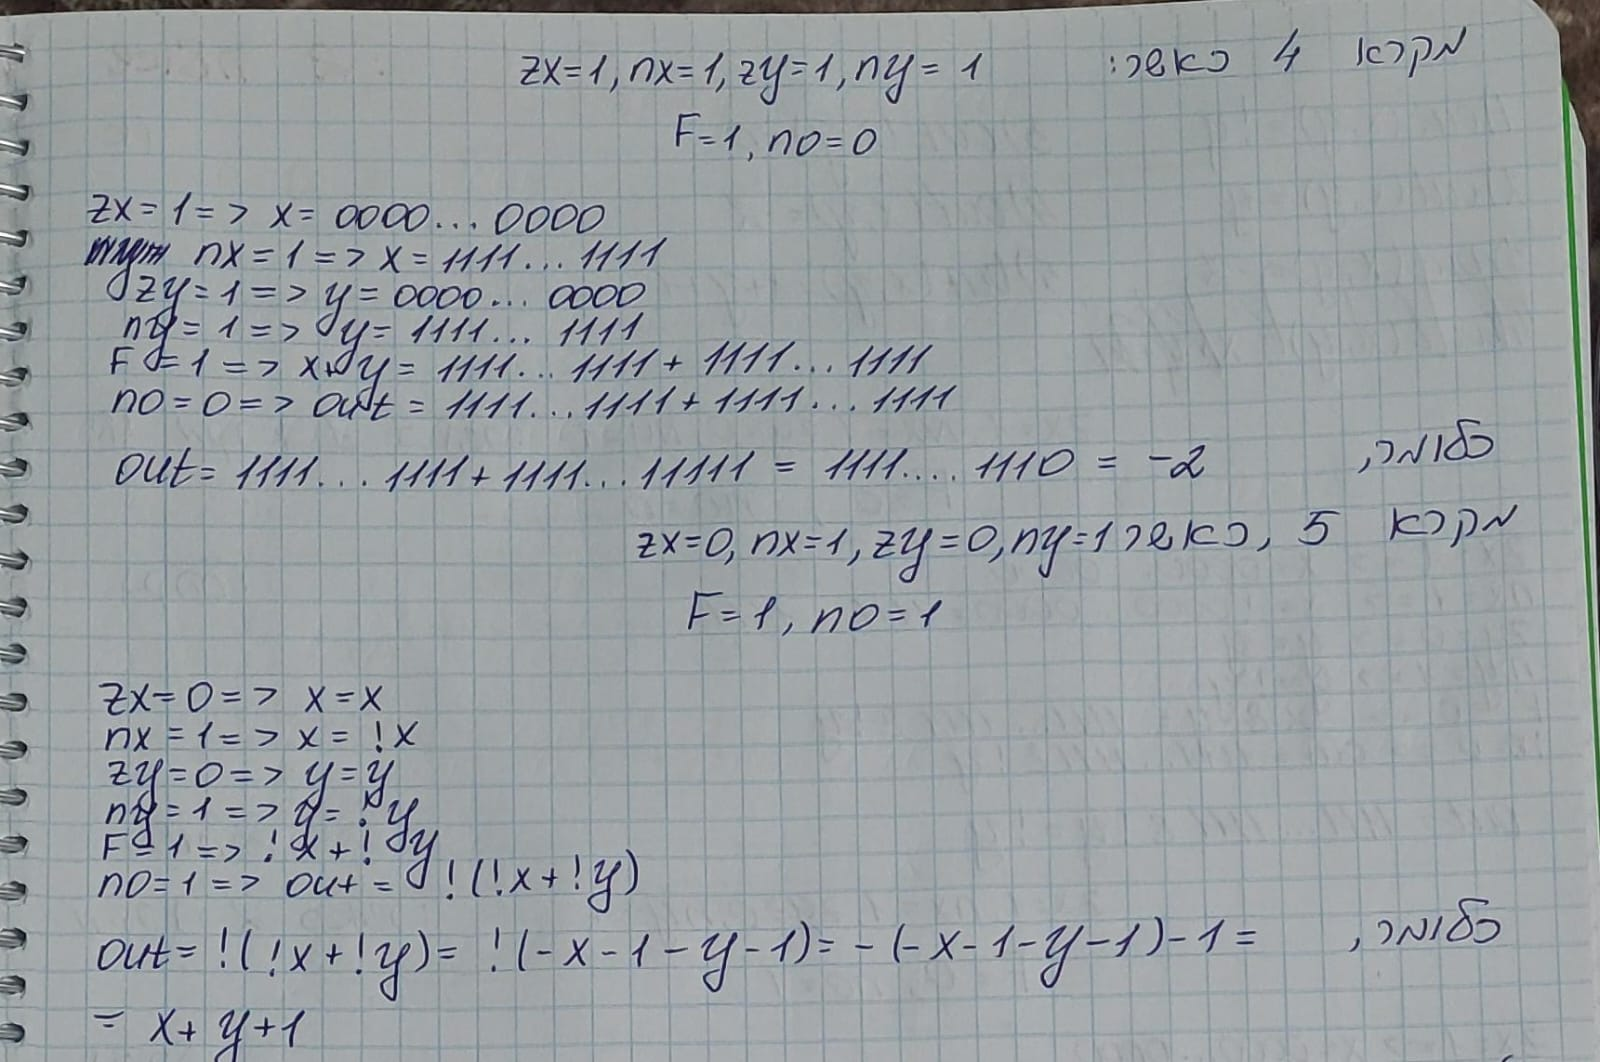 מקרא 4 כאשר: zx=1, nx=1, zy=1, ny=1
F=1, no=0
zx=1=> x= 0000...0000
nx=1=> x=1111...1111
zy=1=> y=0000...0000
ny=1=> y=1111...1111
F=1=> x+y=1111...1111+1111...1111
no=0=> out=1111...1111+1111...1111
כלומר, out=1111...1111+1111...11111=1111....1110=-2
מקרא 5, כאשר zx=0, nx=1, zy=0, ny=1
F=1, no=1
zx=0=> x=x
nx=1=> x=!x
zy=0=> y=y
ny=1=> y=!y
F=1=> !x+!y
no=1=> out= !(!x+!y)
כלומר, out=!(!x+!y)= !(-x-1-y-1)=-(-x-1-y-1)-1=
= x+y+1